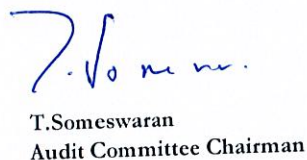 T.Someswaran
Audit Committee Chairman